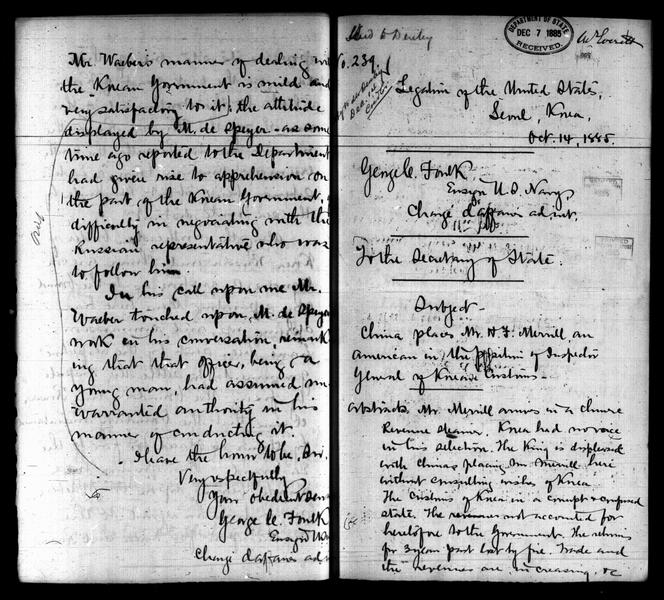 Mr. Waeber's manner of dealing
the Korean Government is mild and
very satisfactory to it; the attitude
displayed by M. de Speyer as some
time ago reported to the Department
had given rise to apprehension on
the part of the Korean Government,
difficulty in negociating with the
Russian representative who was
to follow him.
In his call upon me Mr.
Waeber touched upon M. de Speyer
work in his conversation, remark
ing that that officer, being a
young man, had assumed un
warranted authority in his
manner of conducting it.
I have the honor to be, Sir,
Very respectfully
Your obedient
George C. Foulk
Ensign
Chargé d'affaires ad
No. 239.
DEPARTMENT OF STATE
DEC 7 1885
RECEIVED
Legation of the United States,
Seoul, Korea,
Oct. 14, 1885.
George C. Foulk
Ensign U.S. Navy,
Chargé d'affaires ad int.
To the Secretary of State.
Subject
China places Mr. H. F. Merrill, an
American in the position of Inspector
General of Korean Customs.
Abstract. Mr. Merrill arrives in a Chinese
Revenue steamer. Korea had no voice
in his selection. The King is displeased
with China's placing Mr. Merrill here
without consulting wishes of Korea.
The Customs of Korea in a corrupt & confused
state. The revenues not accounted for
heretofore to the Government. The returns
for 3 years past lost by fire. Trade and
the revenues are increasing, &c